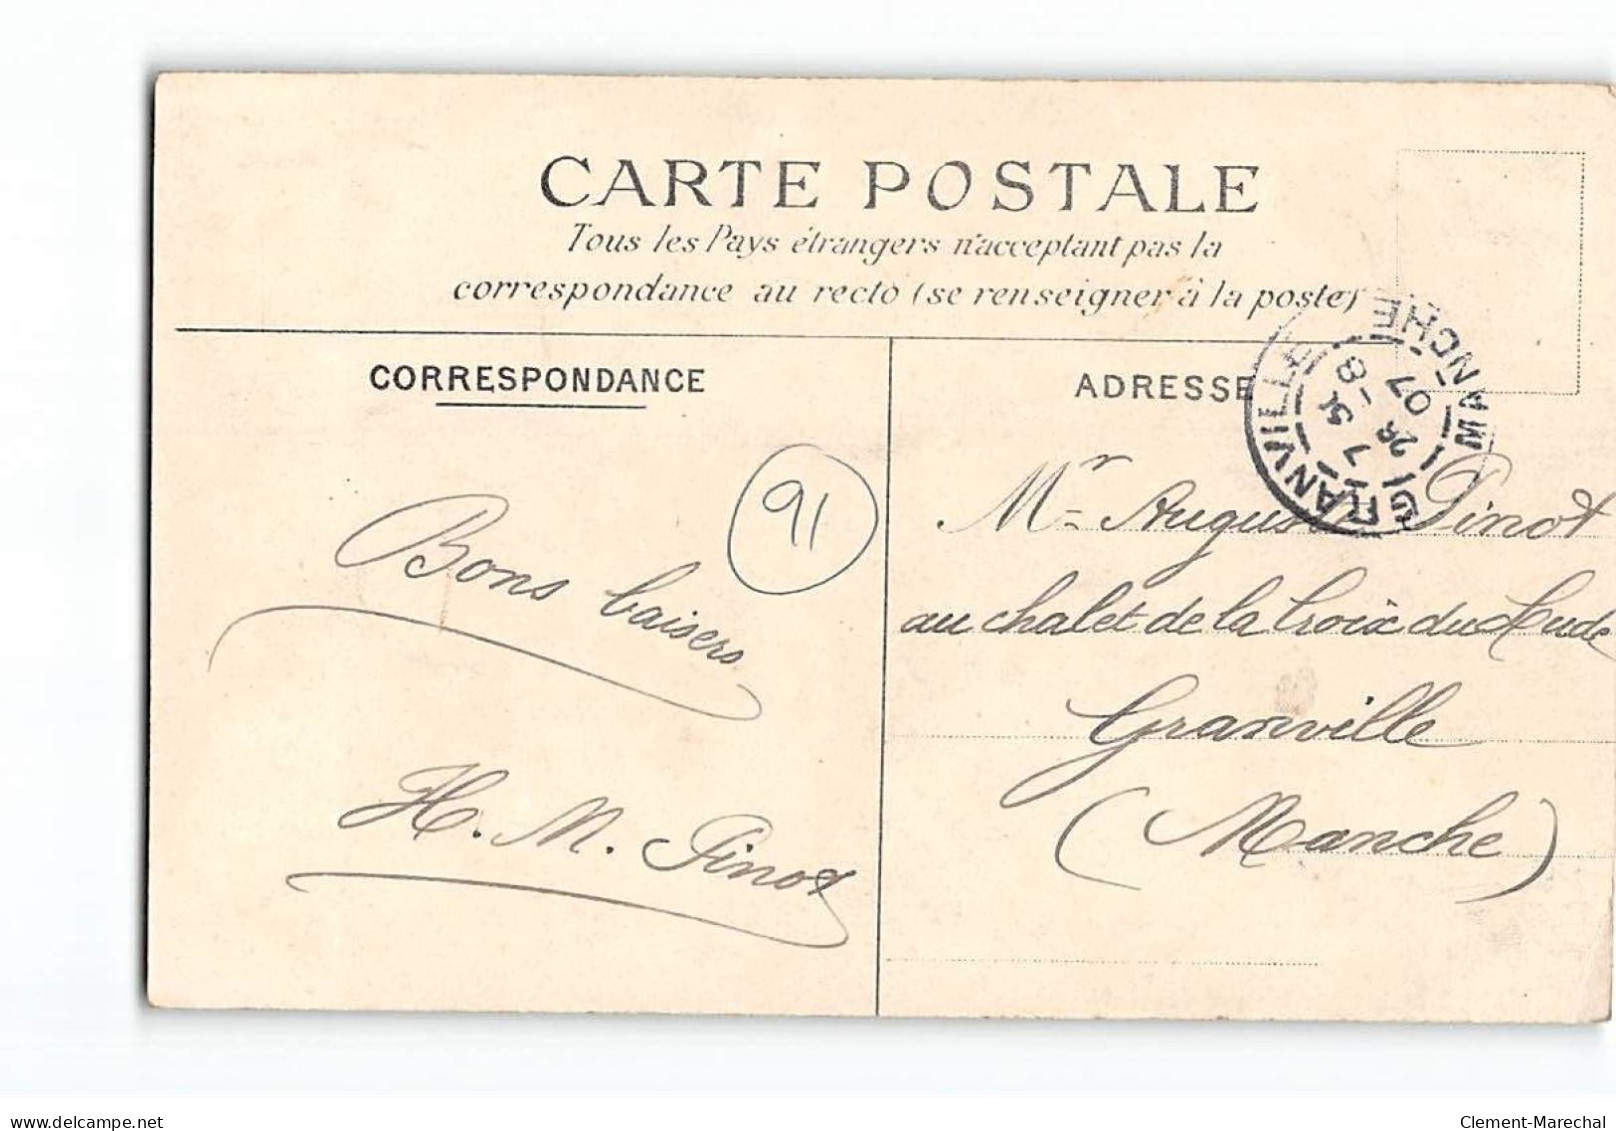 CARTE POSTALE
Tous les Pays étrangers n'acceptant pas la
correspondance au recto (se renseigner à la poste)
CORRESPONDANCE
ADRESSE
GRANVILLE
MANCHE
8 - 5
7
26
07
91
Bons baisers
H. M. Pinot
Mr Auguste Pinot
au chalet de la Croix du Lude
Granville
(Manche)
delcampe.net
Clement-Marechal